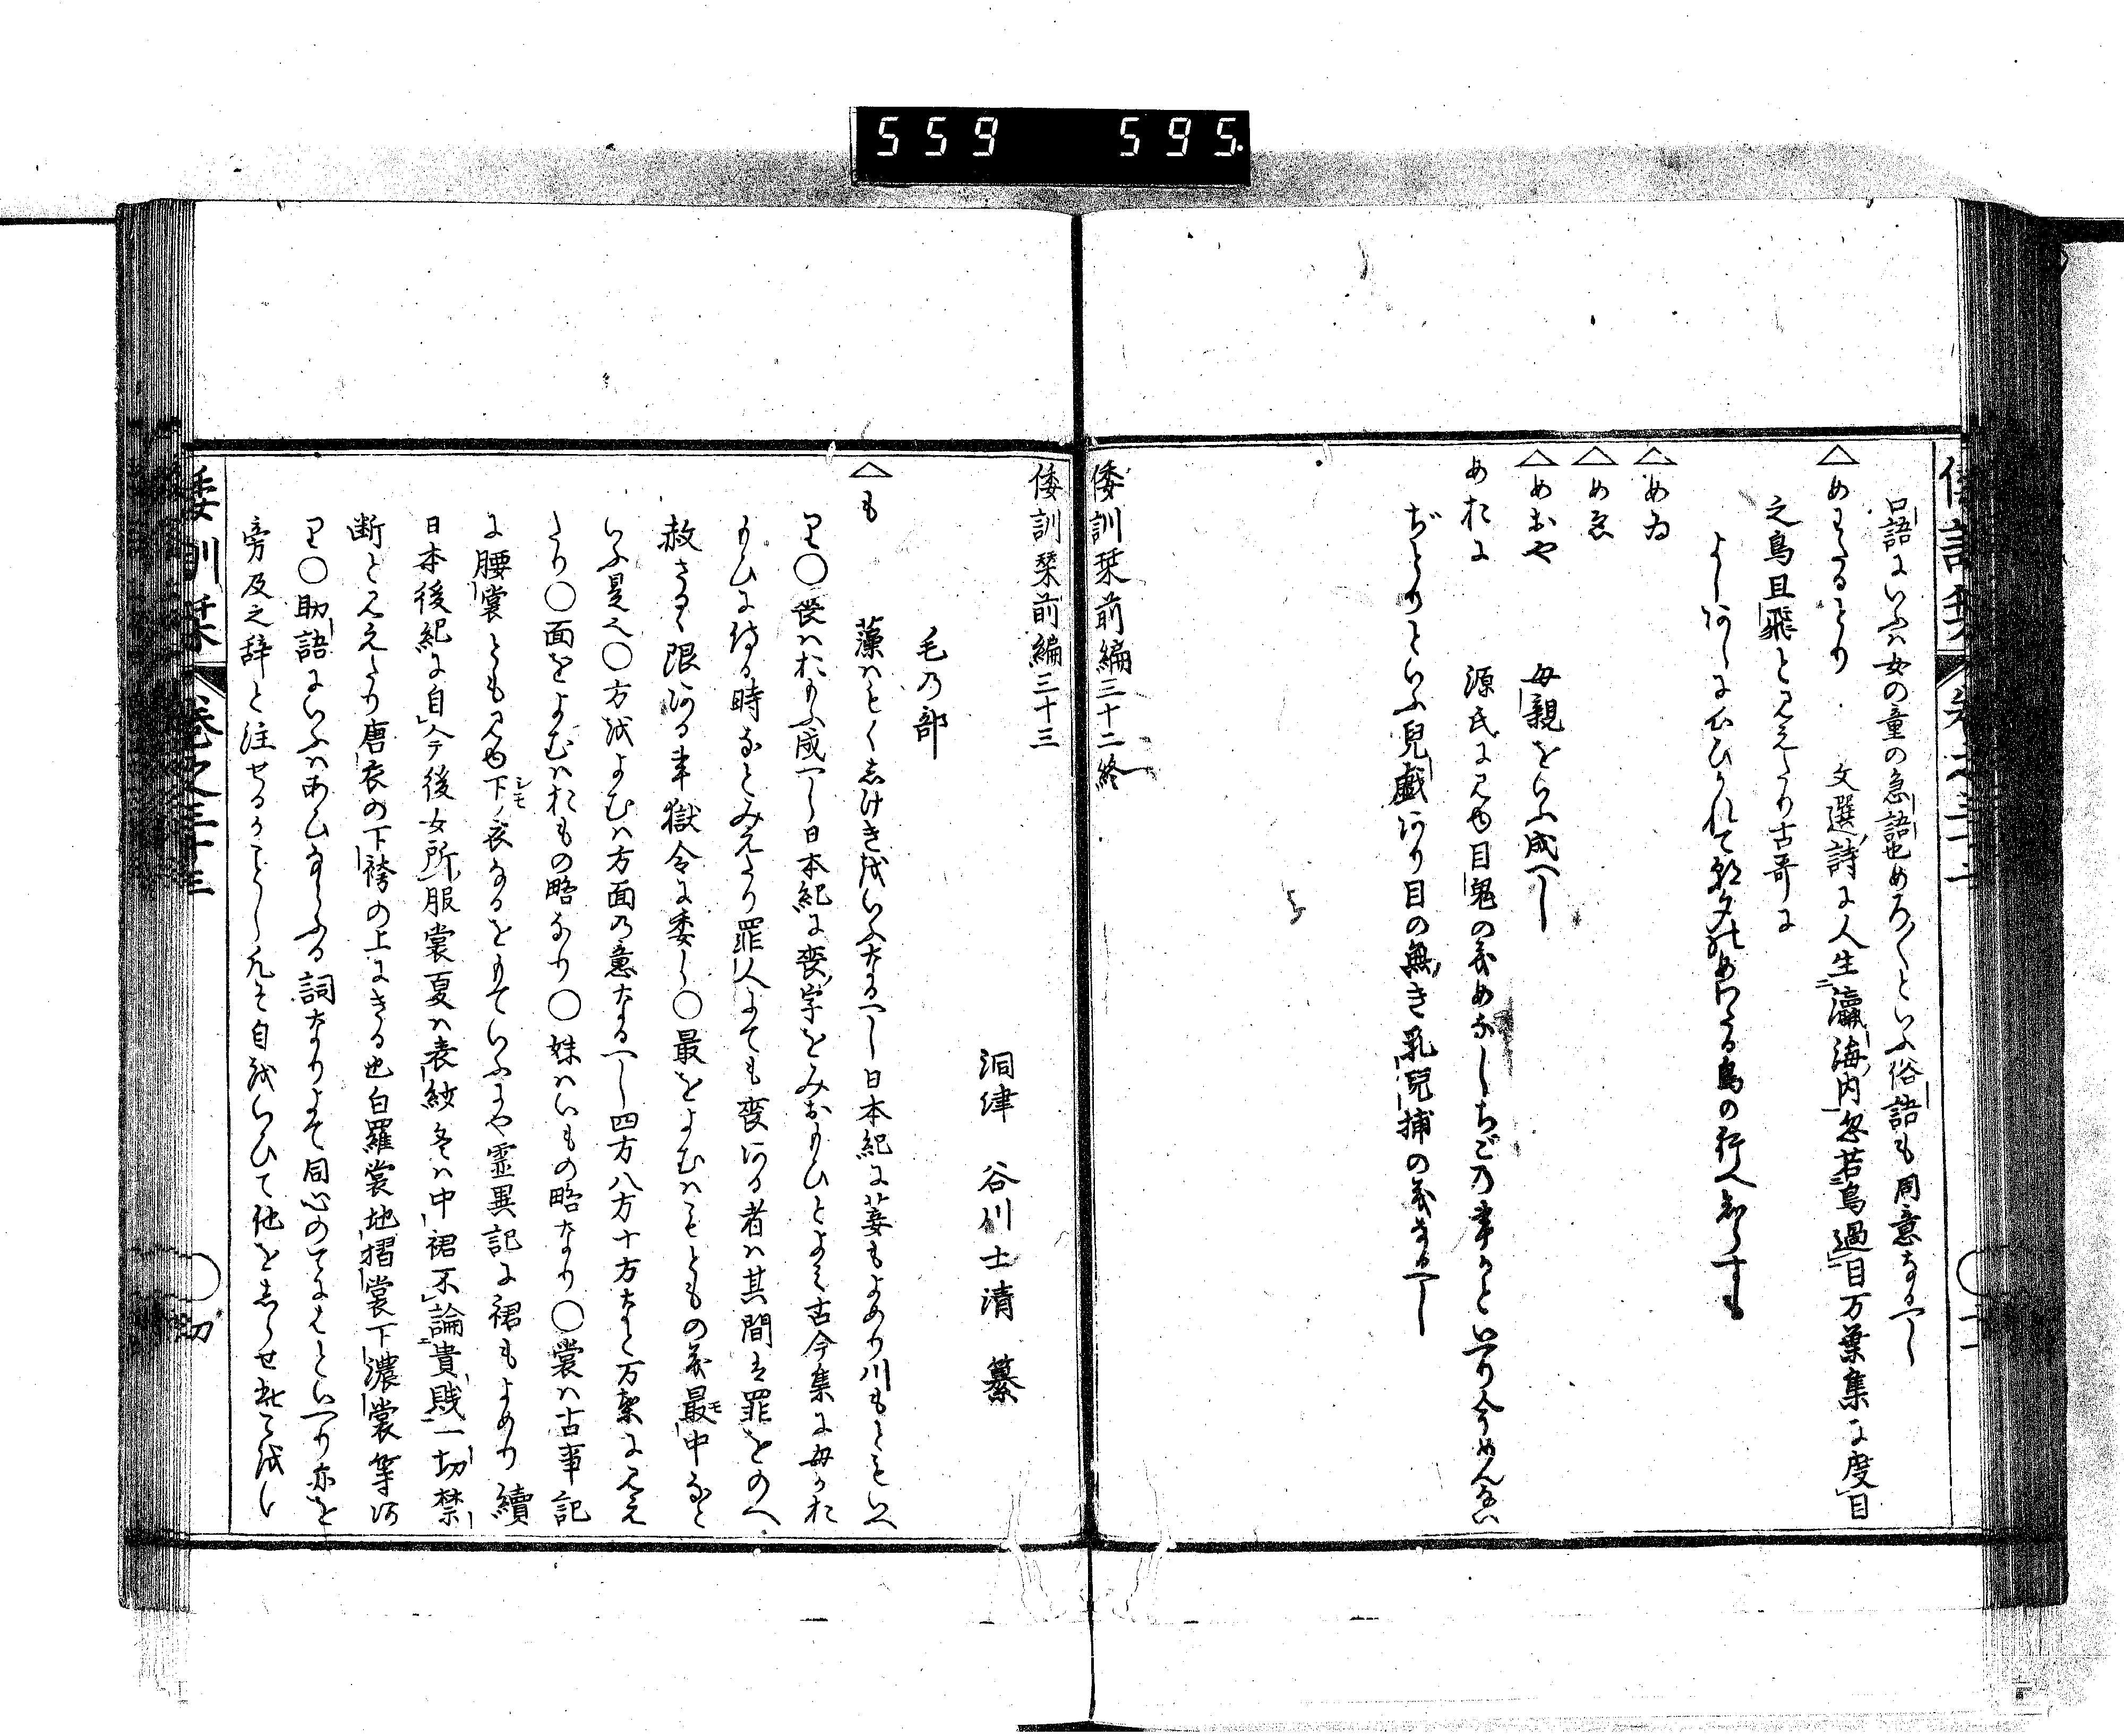 559 595.
口語にいふハ女の童の急語也めろ〱といふ俗語も同意なるへし
△めわたるとり 文選ノ詩に人生ニ瀛海ノ内忽若鳥過目万葉集に度目
之鳥且飛と見えたり古哥に
よしあしに心ひかれて
鳥の行へしらすも
△めゐ
△めゑ
△めおや 母親をいふ成へし
めおに 源氏に見ゆ目鬼の義めなしちごの事かといへり今めんない
ぢとりといふ兒戯あり目の無き乳兒捕の義なるへし
倭訓栞前編三十二終
倭訓栞前編三十三
洞津 谷川士清 纂
毛乃部
△も 藻ハもとくしけきをいふなるへし日本紀に菨もよめり川もともいへ
り〇喪ハおもふ成へし日本紀に喪ノ字をみおもひとよみ古今集に毋かお
もひに侍る時なとみえたり罪人にても喪ある者ハ其間は罪をのへ
赦さるゝ限ある事獄令に委し〇最をよむハもともの義最モ中なと
いふ是也〇方をよむハ方面の意なるへし四方八方十方なと万葉に見え
たり〇面をよむハおもの略なり〇妹ハいもの略なり〇裳ハ古事記
に腰裳とも見ゆ下シモノ衣なるをもていふにや霊異記に裙もよめり續
日本後紀に自今後女所服裳夏ハ表紋冬ハ中裙不論貴賤一切禁
断と見えたり唐衣の下袴の上にきる也白羅裳地摺裳下濃裳等あ
り〇助語にいふハあひならふる詞なりよて同心のてにはといへり亦を
旁及之辞と注せるかことし凡そ自をいひて他をしらせ此をい
倭訓栞 巻之三十三